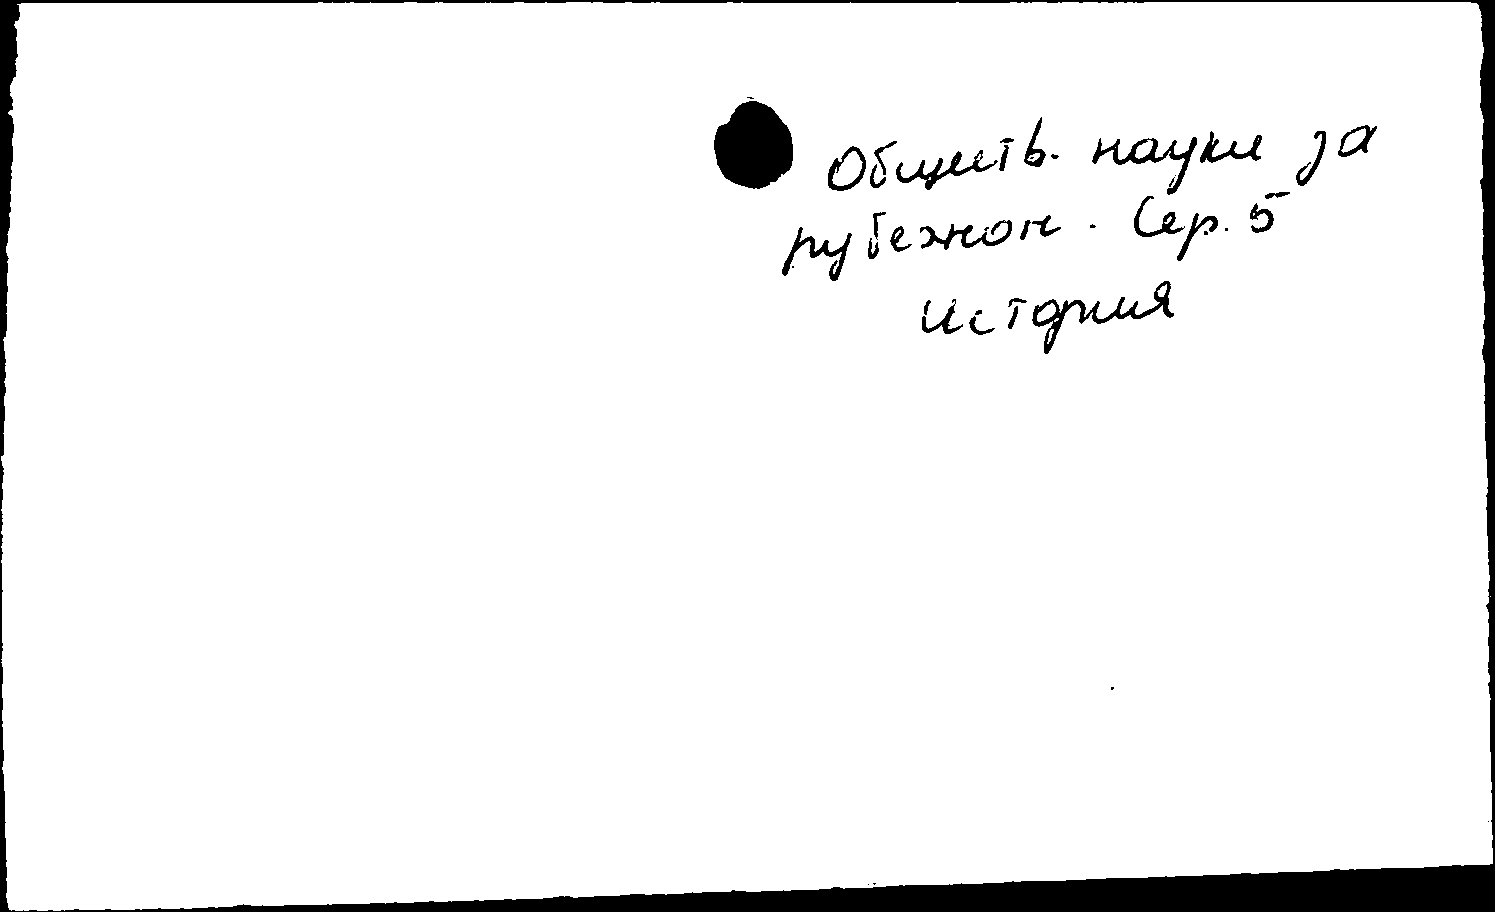 Обществ. науки за
рубежом. Сер. 5
История